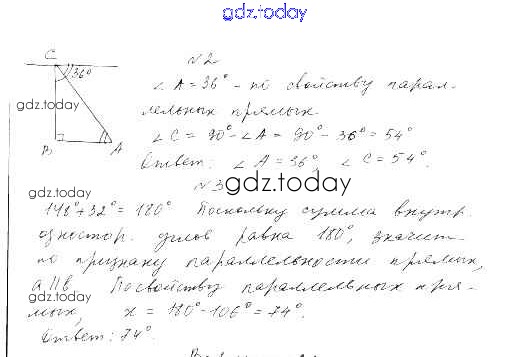 gdz.today
C
36°
№2
∠A = 36° - по свойству парал-
gdz.today
лельных прямых
∠C = 90° - ∠A = 90° - 36° = 54°
B A
Ответ: ∠A = 36°, ∠C = 54°.
gdz.today
№3 gdz.today
148° + 32° = 180° Поскольку сумма внутр.
одностор. углов равна 180°, значит
по признаку параллельности прямых,
a || b По свойству параллельных пря-
gdz.today
мых, x = 180° - 106° = 74°.
Ответ: 74°.